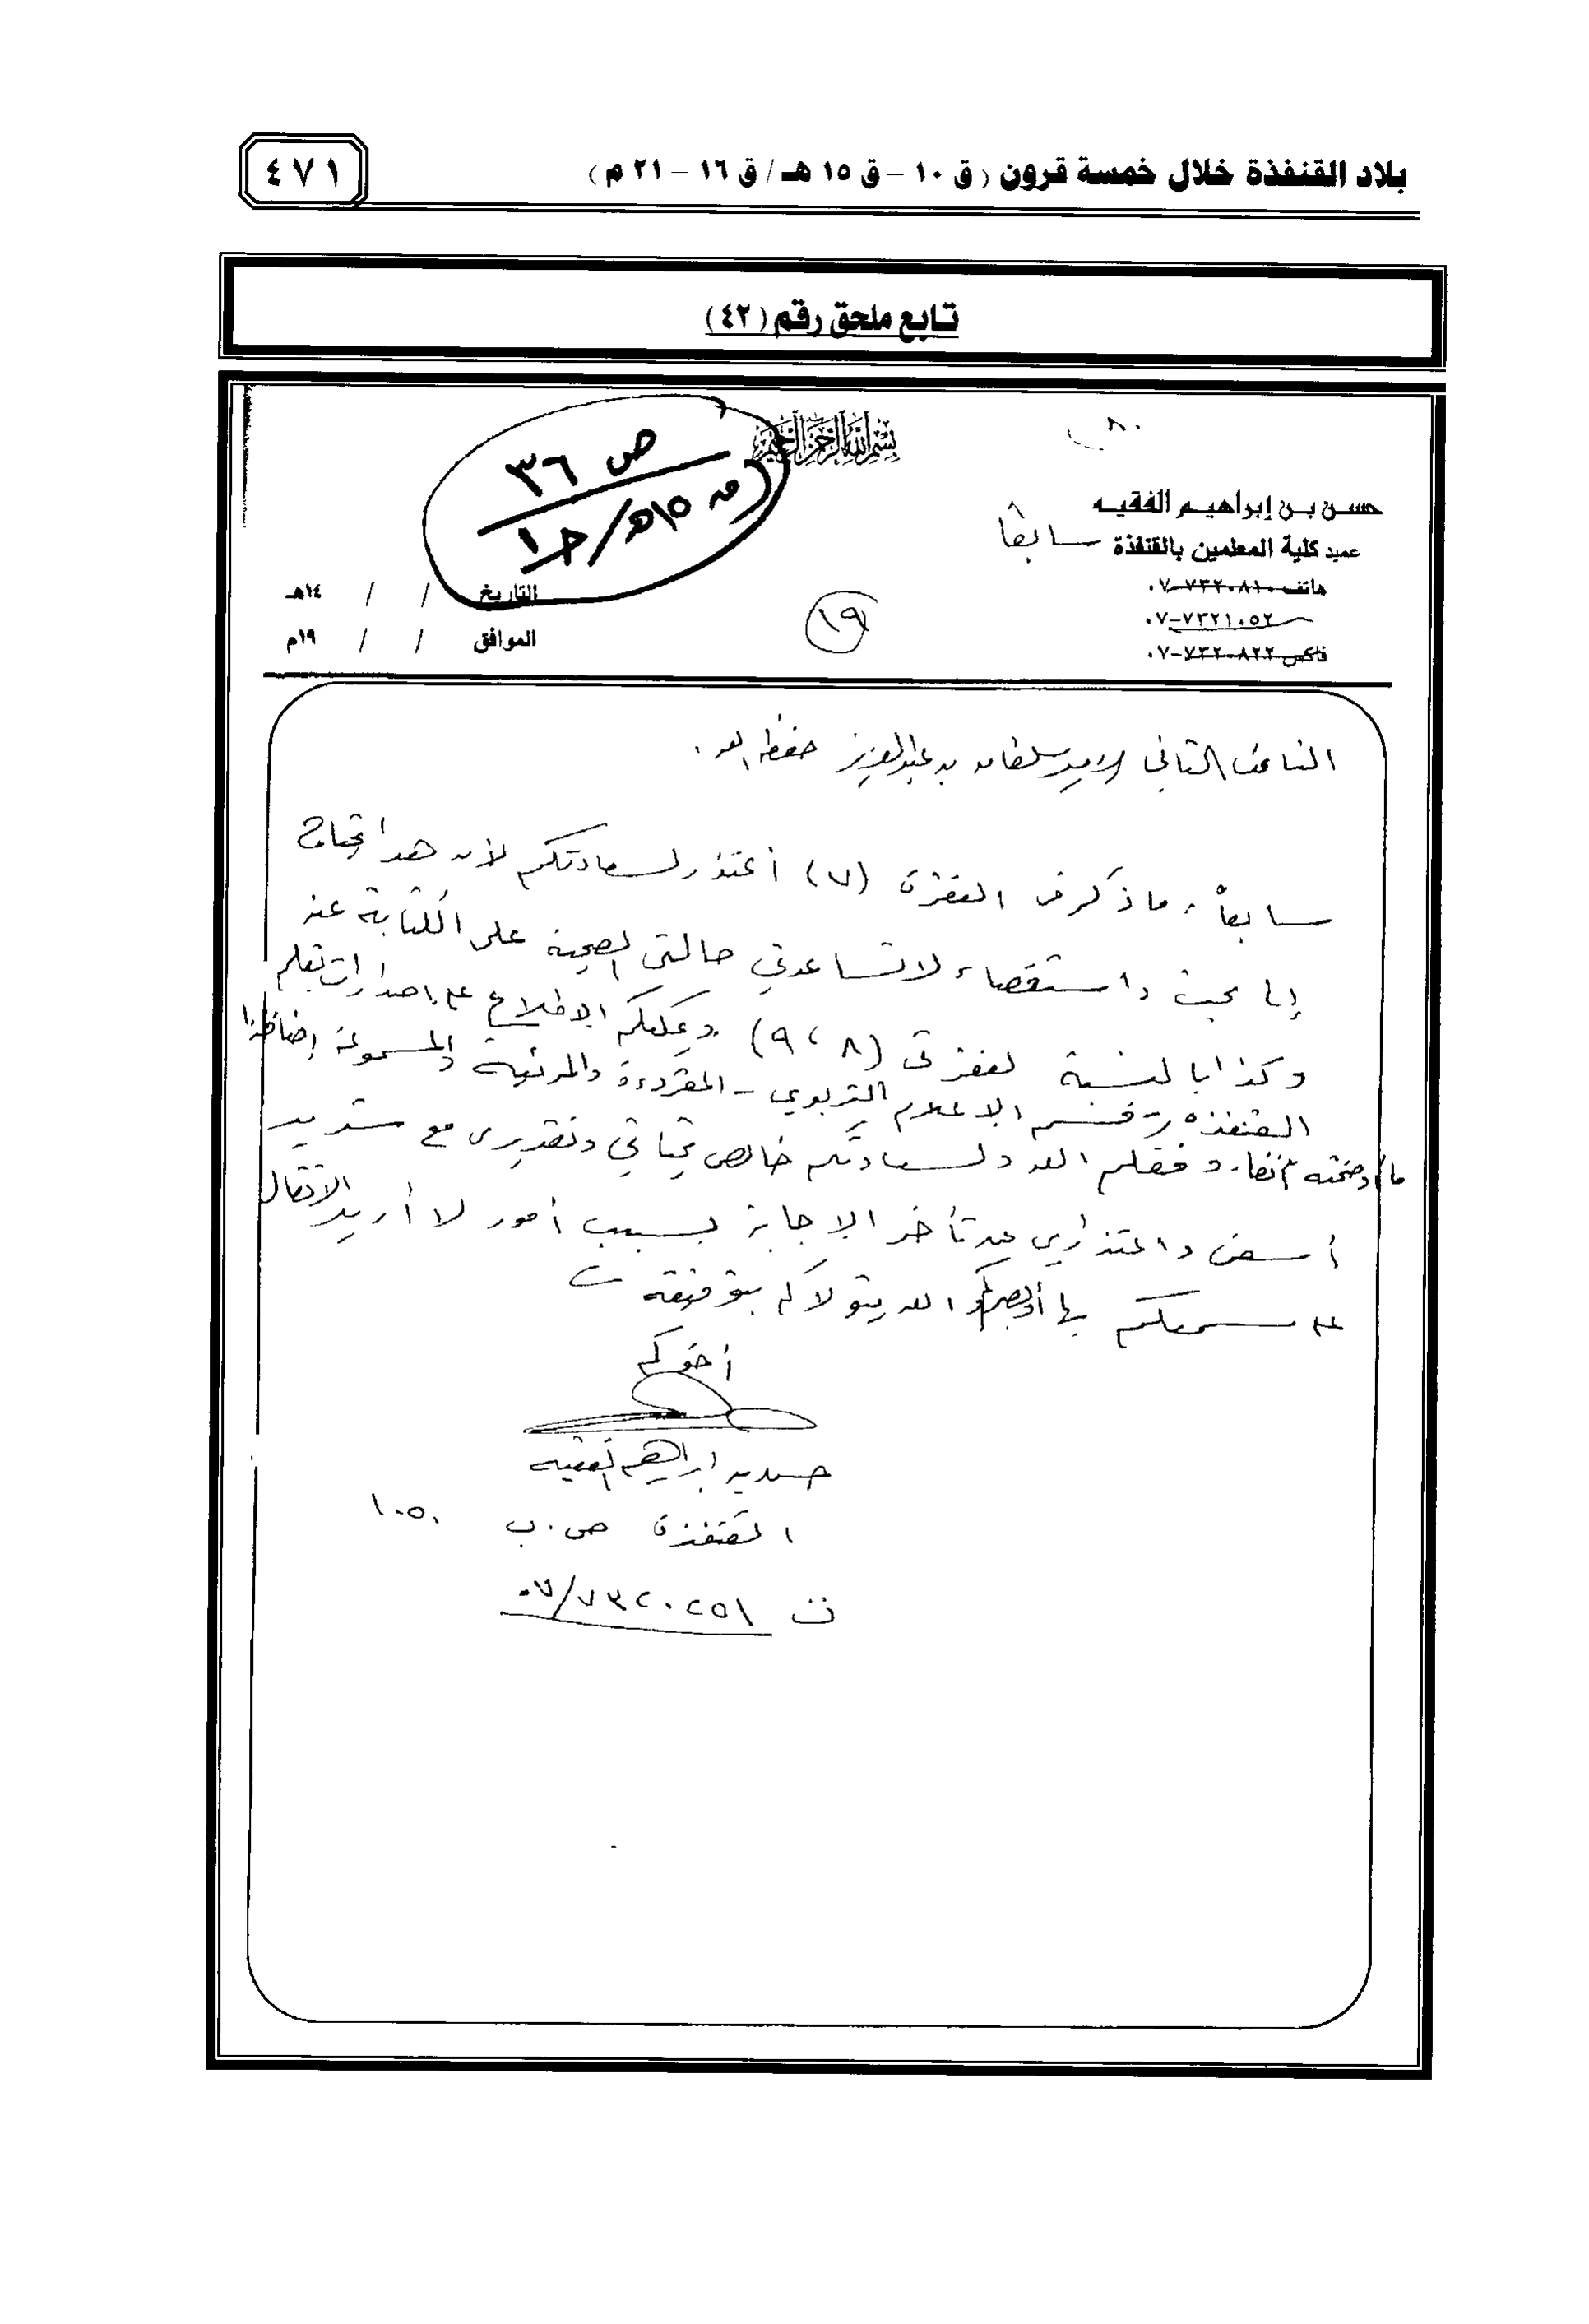 بلاد القنفذة خلال خمسة قرون (ق ١٠ - ق ١٥ هـ / ق ١٦ - ٢١ م)
٤٧١
تابع ملحق رقم (٤٢)
بسم الله الرحمن الرحيم
ص ٣٦
ق ١٥هـ/ جـ١
٨٠
حسن بن إبراهيم الفقيه
عميد كلية المعلمين بالقنفذة سابقاً
هاتف ٧٣٢٠٨١٠-٠٧
٧٣٢١٠٥٢-٠٧
فاكس ٧٣٢٠٨٢٢-٠٧
التاريخ / / ١٤هـ
الموافق / / ١٩م
١٩
النائب الثاني الأمير سلطان بن عبدالعزيز حفظه الله .
سابعاً : ما ذكر في الفقرة (٧) أعتذر لسعادتكم لأن هذا يحتاج
إلى بحث واستقصاء لا تساعدني حالتي الصحية على الكتابة عنه
وكذا بالنسبة لفقرتي (٨ ، ٩) وعليكم الاطلاع على إصدارات تعليم
القنفذة قسم الإعلام التربوي - المقروءة والمرئية والمسموعة إضافة إلى
ما أوضحته آنفا . وفقكم الله ولسعادتكم خالص تحياتي وتقديري مع شديد
أسفي واعتذاري عن تأخر الإجابة بسبب أمور لا أريد الأثقال
على سمعكم بها أو بصركم والله يتولاكم بتوفيقه
أخوكم
حسن بن ابراهيم الفقيه
القنفذة ص . ب ١٠٥٠
ت ٠٧/٧٣٢٠٢٥١